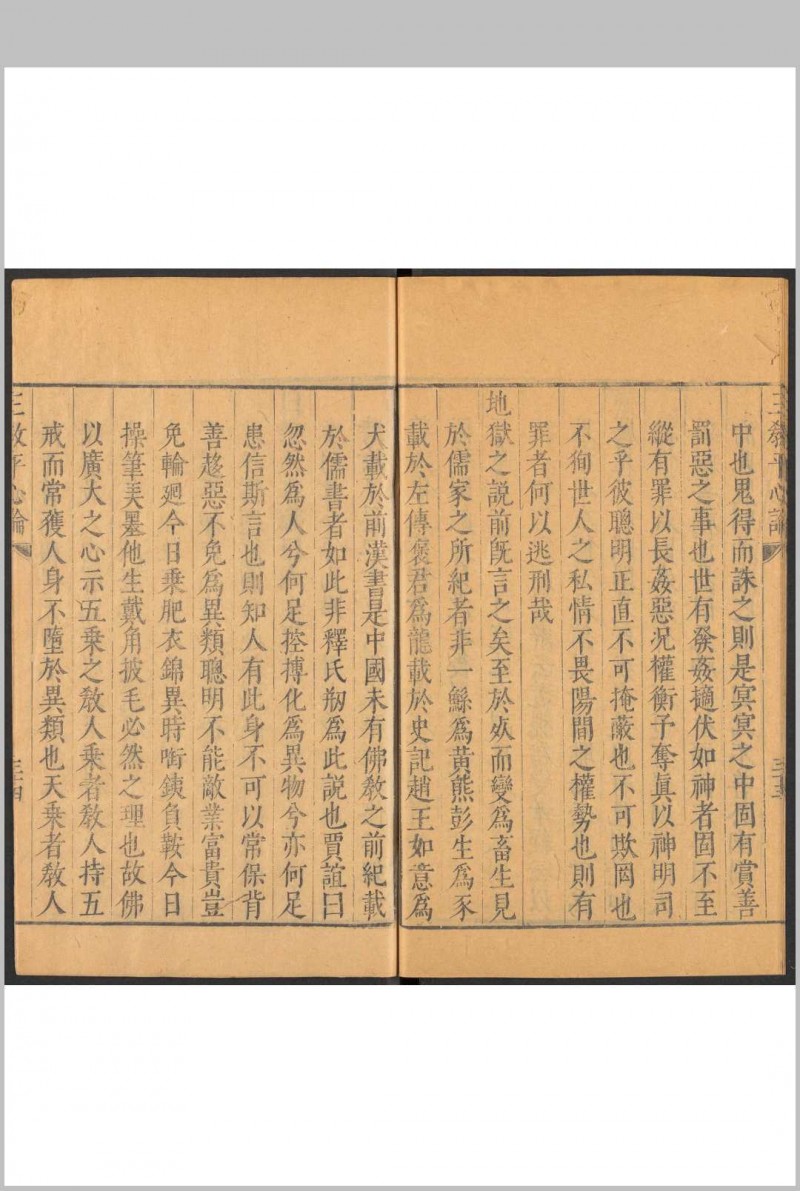 三教平心論
三十三
中也鬼得而誅之則是冥冥之中固有賞善
罰惡之事也世有發姦擿伏如神者固不至
縱有罪以長姦惡況權衡予奪眞以神明司
之乎彼聰明正直不可掩蔽也不可欺罔也
不徇世人之私情不畏陽間之權勢也則有
罪者何以逃刑哉
地獄之說前旣言之矣至於歿而變爲畜生見
於儒家之所紀者非一鯀爲黃熊彭生爲豕
載於左傳褒君爲龍載於史記趙王如意爲
犬載於前漢書是中國未有佛敎之前紀載
於儒書者如此非釋氏刱爲此說也賈誼曰
忽然爲人兮何足控摶化爲異物兮亦何足
患信斯言也則知人有此身不可以常保背
善趍惡不免爲異類聰明不能敵業富貴豈
免輪廻今日乗肥衣錦異時啣鐵負鞍今日
操筆弄墨他生戴角披毛必然之理也故佛
以廣大之心示五乗之敎人乗者敎人持五
戒而常獲人身不墮於異類也天乗者敎人
三教平心論
三十四